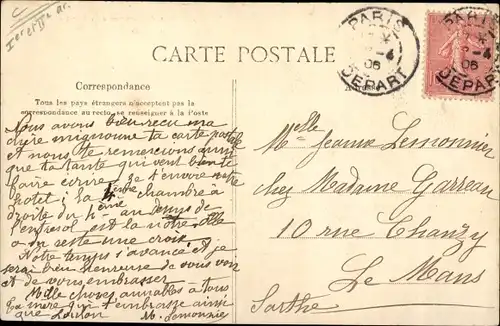 Ier et IIe ar.
CARTE POSTALE
PARIS
-4
06
DÉPART
PARIS
-4
06
DÉPART
Correspondance
Tous les pays étrangers n'acceptent pas la
correspondance au recto, se renseigner à la Poste
Nous avons bien recu ma
chere mignonne ta carte postale
et nous te remercions ainsi
que ta tante qui veut bien te
faire écrire. Je t'envoie notre
hotel; la 1ere chambre à
droite du 4eme au dessus de
l'entresol est la notre. Elle
a un reste une croix
Notre temps s'avance et je
serai bien heureuse de vous voir
et de vous embrasser
Mille choses aimables à tous
Ta mere qui t'embrasse ainsi
que Loulou
M. Lemonnier
Melle Jeanne Lemonnier
chez Madame Garreau
10 rue Chanzy
Le Mans
Sarthe